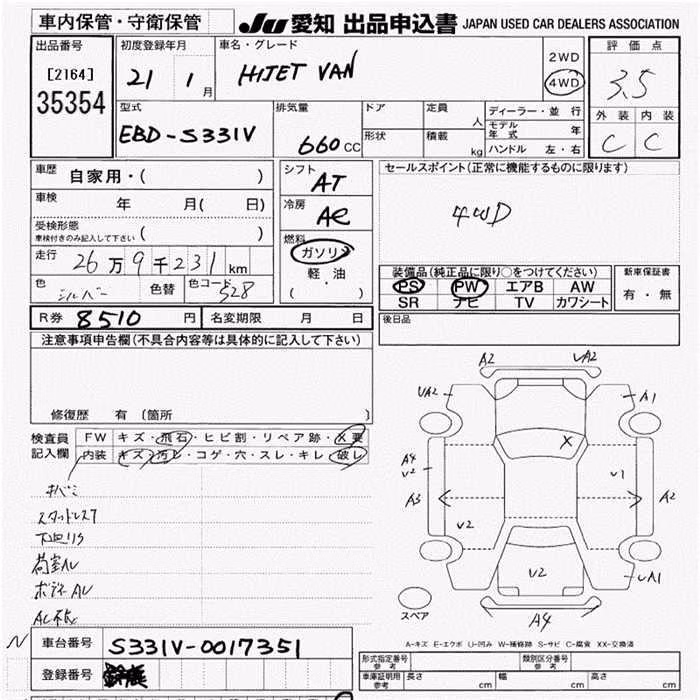 車内保管・守衛保管
JU 愛知 出品申込書 JAPAN USED CAR DEALERS ASSOCIATION
出品番号
[2164]
35354
初度登録年月
21 1月
車名・グレード
HIJET VAN
2WD
4WD
評価点
3.5
外装 内装
C C
型式
EBD-S331V
排気量
660 CC
ドア
形状
定員 人
積載 kg
ディーラー・並行
モデル年式 年
ハンドル 左・右
車歴 自家用・( )
車検 年 月( 日)
受検形態
車検付きのみ記入して下さい ( )
走行 26万9千231km
色 シルバー 色替 色コード S28
シフト
AT
冷房
AC
燃料
ガソリン
軽・油
( ・ )
セールスポイント(正常に機能するものに限ります)
4WD
装備品(純正品に限り○をつけてください)
PS PW エアB AW
SR ナビ TV カワシート
新車保証書
有・無
R券 8510円 名変期限 月 日
後日品
注意事項申告欄(不具合内容等は具体的に記入して下さい)
修復歴 有〔箇所 〕
検査員記入欄
FW キズ・飛石・ヒビ割・リペア跡・X要
内装 キズ・汚レ・コゲ・穴・スレ・キレ・破レ
スタッドレス7
下廻りS
荷室AU
ボディAU
A2 UA2
UA2 A1
X
A4
V2
V1
A3 A2
V2
V2
UA1
A4
スペア
A-キズ E-エクボ U-凹み W-補修跡 S-サビ C-腐食 XX-交換済
車台番号 S331V-0017351
登録番号
形式指定番号
参考
類別区分番号
参考
車庫証明用
参考
長さ cm 幅 cm 高さ cm